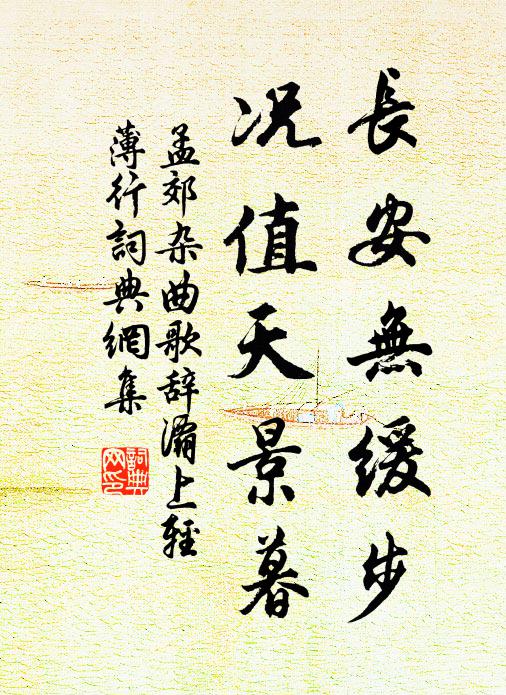 長安無緩步
况值天景暮
孟郊杂曲歌辞灞上輕
薄行詞典網集
詞典
网印